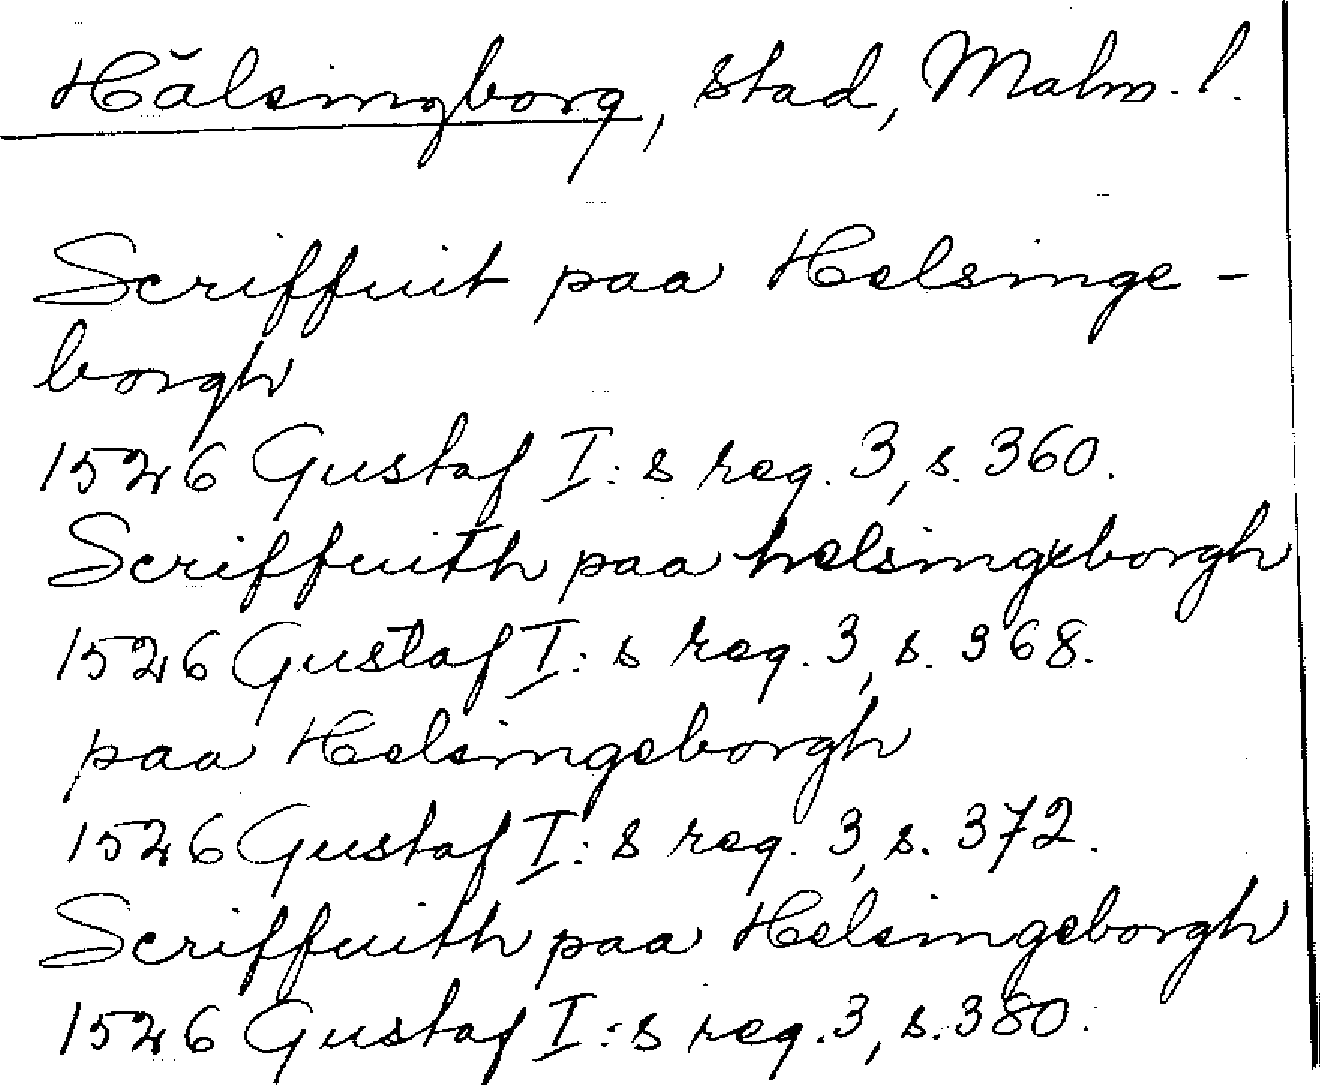 Hälsingborg, stad, Malm. l.
Scriffuit paa Helsinge-
borgh
1526 Gustaf I:s reg. 3, s. 360.
Scriffuith paa helsingeborgh
1526 Gustaf I:s reg. 3, s. 368.
paa Helsingeborgh
1526 Gustaf I:s reg. 3, s. 372.
Scriffuith paa Helsingeborgh
1526 Gustaf I:s reg. 3, s. 380.